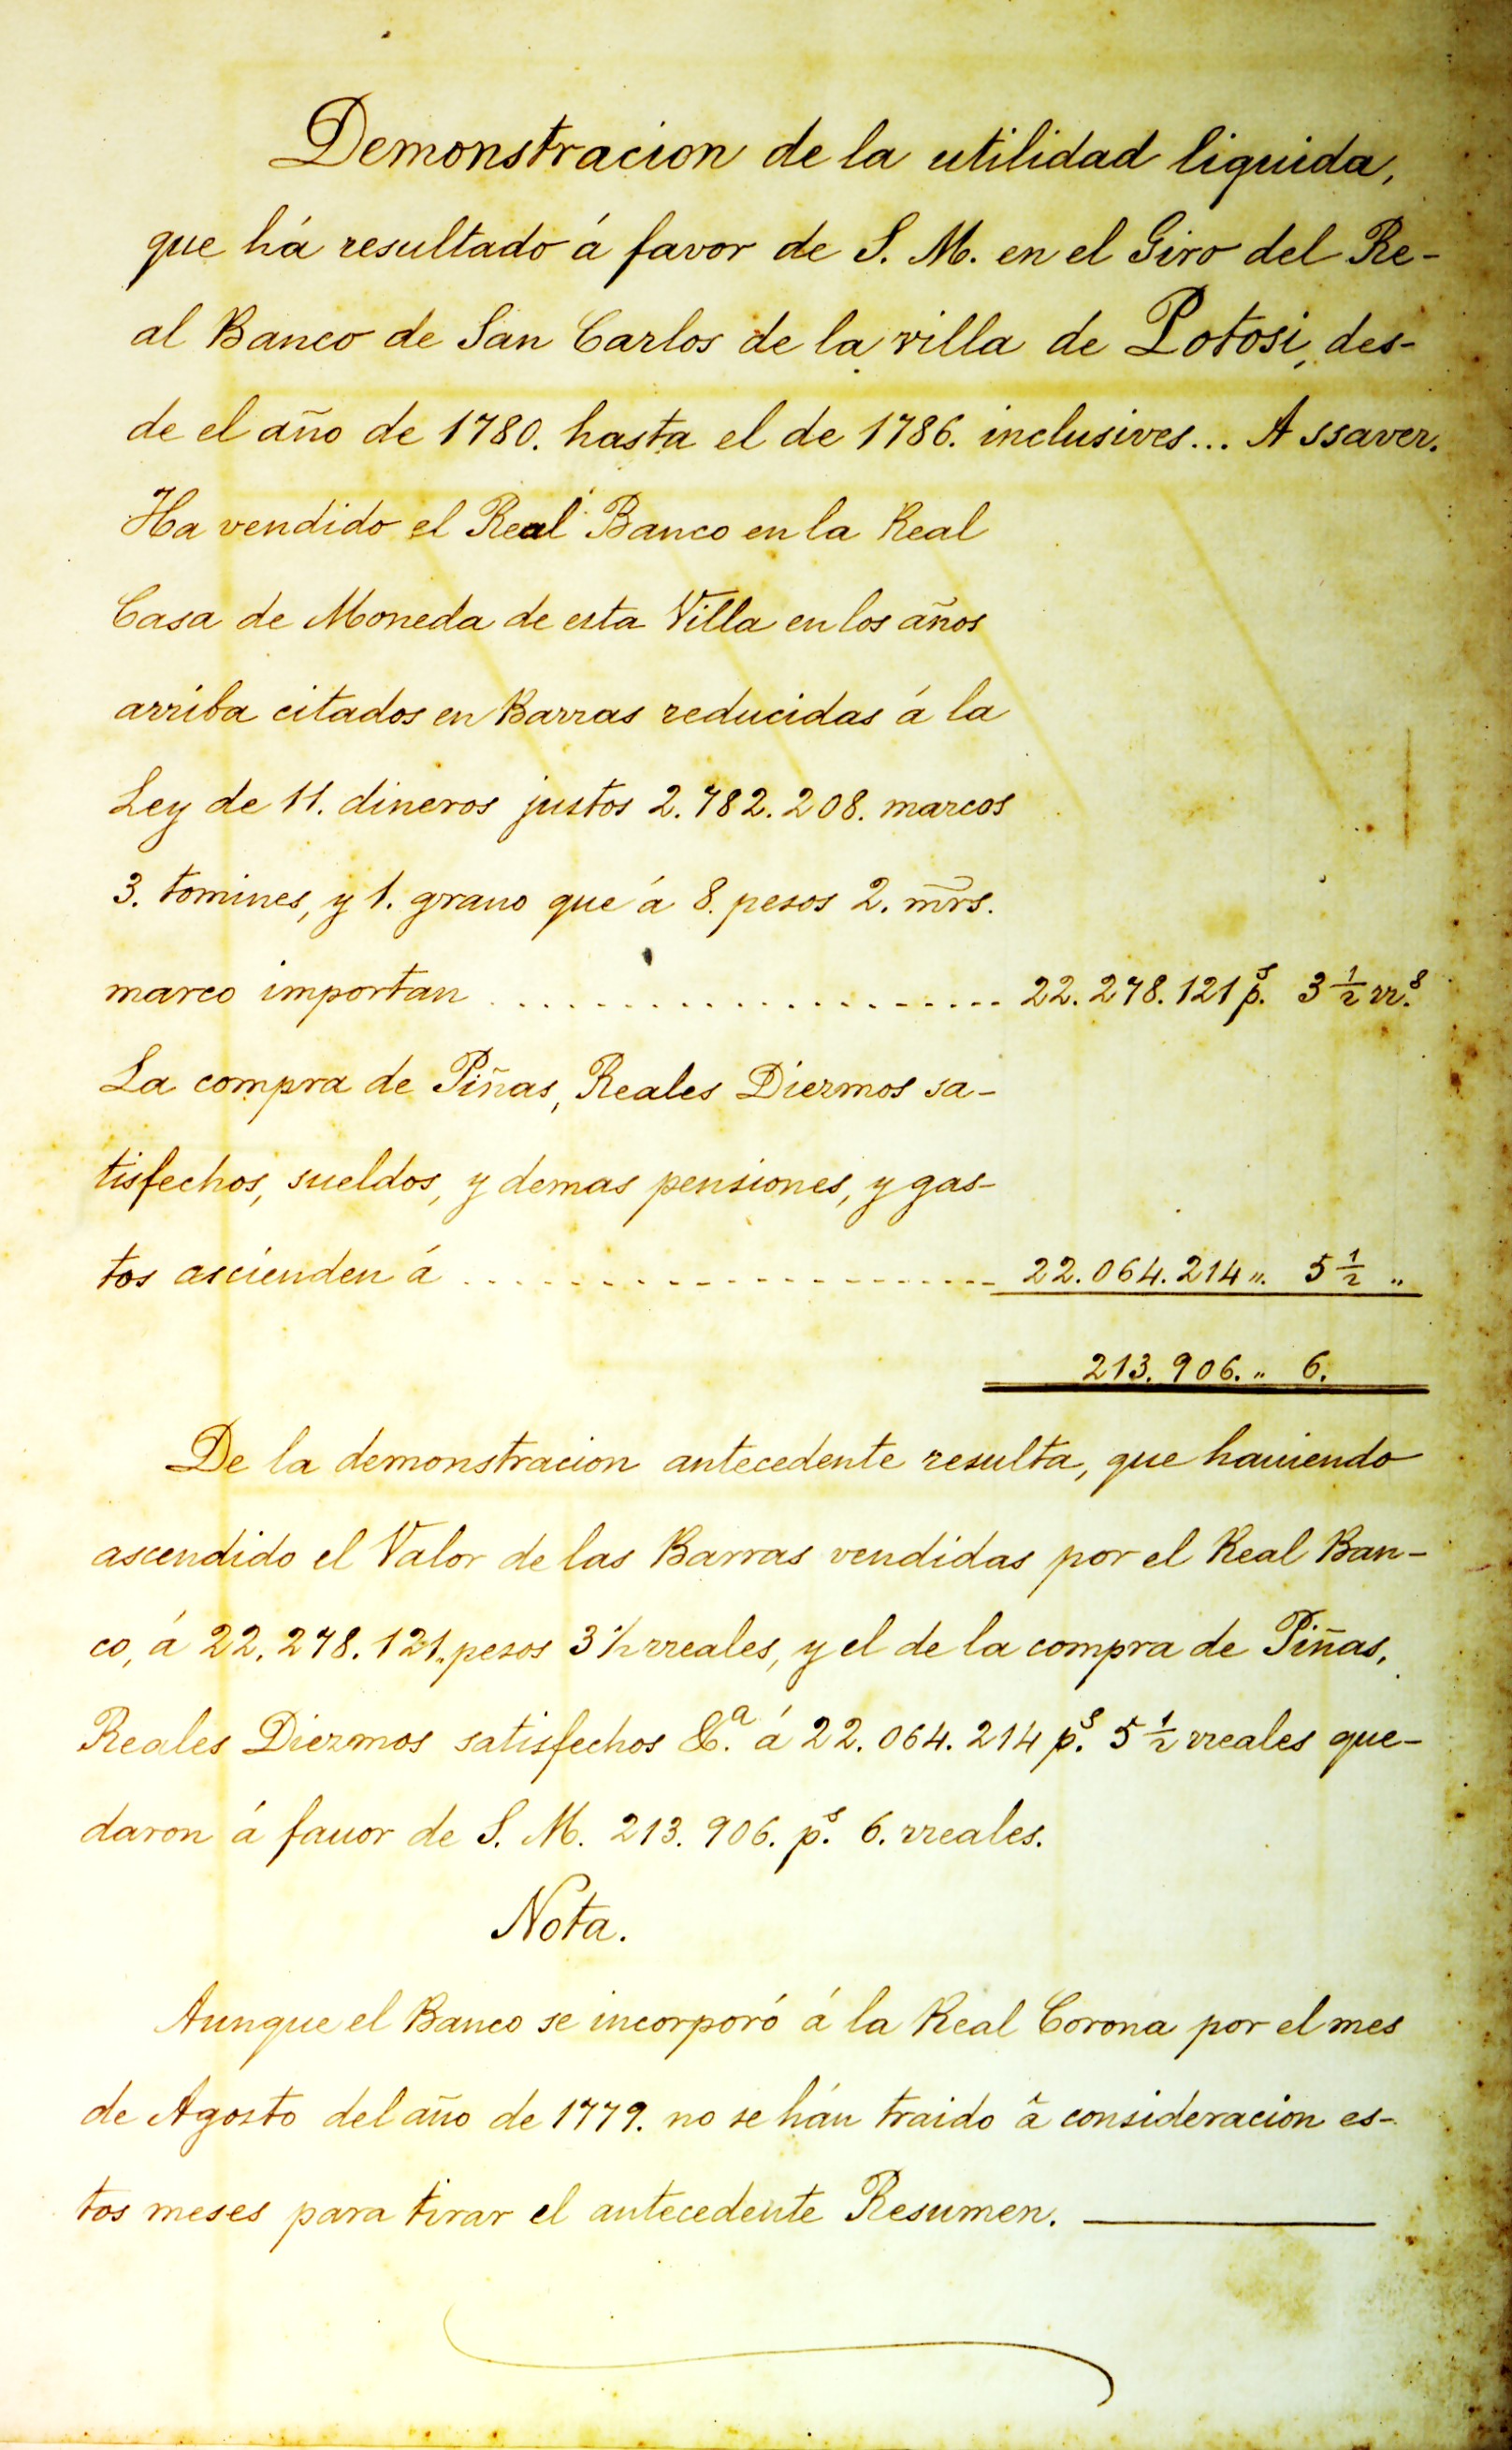 Demonstracion de la utilidad liquida,
que há resultado á favor de S. M. en el Giro del Re-
al Banco de San Carlos de la villa de Potosi, des-
de el año de 1780. hasta el de 1786. inclusives... A ssaver.
Ha vendido el Real Banco en la Real
Casa de Moneda de esta Villa en los años
arriba citados en Barras reducidas á la
Ley de 11. dineros justos 2.782.208. marcos
3. tomines, y 1. grano que á 8. pesos 2. mrs.
marco importan .................... 22.278.121 p.s 3 1/2 rr.s
La compra de Piñas, Reales Diezmos sa-
tisfechos, sueldos, y demas pensiones, y gas-
tos ascienden á .................... 22.064.214 ". 5 1/2 "
213.906. " 6.
De la demonstracion antecedente resulta, que hauiendo
ascendido el Valor de las Barras vendidas por el Real Ban-
co, á 22.278.121. pesos 3 1/2 rreales, y el de la compra de Piñas,
Reales Diezmos satisfechos &.a á 22.064.214 p.s 5 1/2 rreales que-
daron á fauor de S. M. 213.906. p.s 6. rreales.
Nota.
Aunque el Banco se incorporó á la Real Corona por el mes
de Agosto del año de 1779. no se hán traido ã consideracion es-
tos meses para tirar el antecedente Resumen.